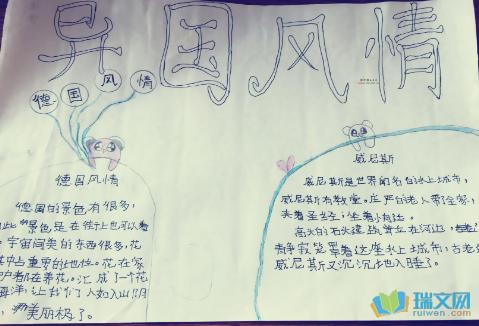 异国风情
德国风情
德国风情
德国的景色有很多,
此 景色是 在 往 也可以看
宇宙间美的东西很多,花
其中占重要的地位。花在家
户都在养花。汇成了一个花
海洋 让我们人如入山阴
美丽极了。
威尼斯
威尼斯是世界闻名的水上城市,
威尼斯有教堂。庄严的老人带全家,
夹着圣经 坐着小 边。
高大的石头建筑耸立在河边,
静寂笼罩着这座水上城市,古老的
威尼斯又沉沉地入睡了。
瑞文网
ruiwen.com